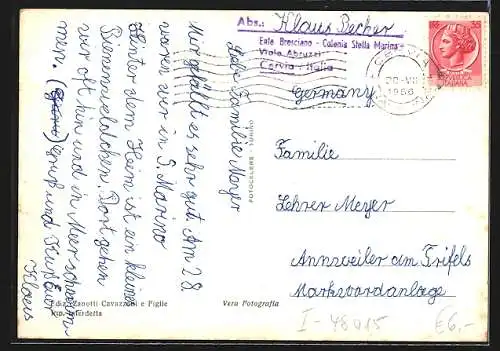 Liebe Familie Meyer
Mir gefällt es sehr gut. Am 28.
waren wir in S. Marino
Hinter dem Heim ist ein kleines
Dort gehen
wir oft hin und in Meer schwim-
men. Gruß und Kuß Euer
Klaus
Abs.: Klaus Becher
Ente Bresciano - Colonia Stella Marina
Viale Abruzzi
Cervia - Italia
Germany
Familie
Lehrer Meyer
Annweiler am Trifels
Markwardanlage
CERVIA
1966
REPVBBLICA
ITALIANA
FOTOCELERE - TORINO
Ediz. Zanotti Cavazzoni e Figlie
Vera Fotografia
I-48015
€6,-